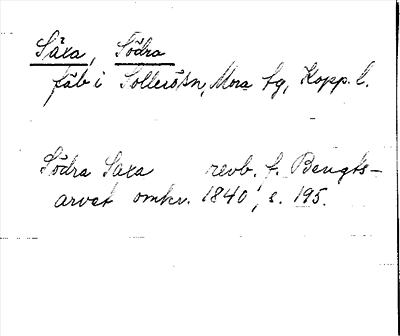 Säxa, Södra
fäb i Sollerösn, Mora tg, Kopp. l.
Södra Saxa revb. f. Bengts-
arvet omkr. 1840, s. 195.